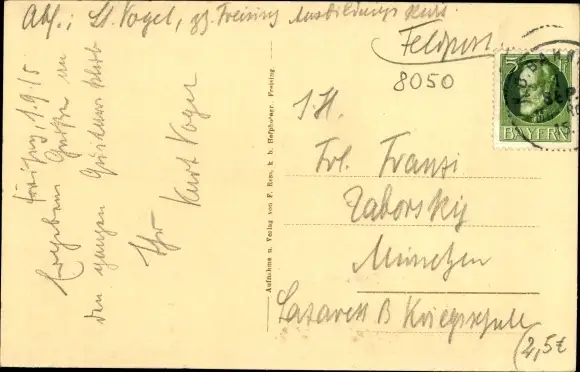 Abs.: Lt. Vogel, zz. Freising Ausbildungs Kurs.
Feldpost
8050
BAYERN
5
Freising, 1.9.15
Ergebene Grüße an
den ganzen
Ihr
Kurt Vogel
Aufnahme u. Verlag von P. Rees, k. b. Hofphotogr. Freising.
S.H.
Frl. Franzi
Zaborsky
München
Lazarett B Kriegsschule
2,5€